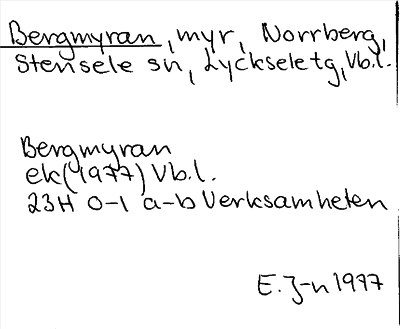 Bergmyran, myr, Norrberg,
Stensele sn, Lycksele tg, Vb.l.
Bergmyran
ek (1977) Vb.l.
23H 0-1 a-b Verksamheten
E. J-n 1977